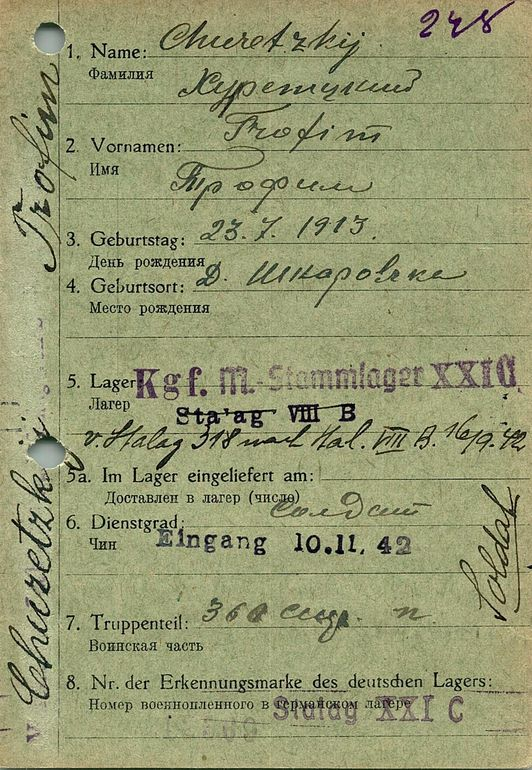 278
1. Name: Churetzkij
Фамилия Хурецкий
2. Vornamen: Trofim
Имя Трофим
3. Geburtstag: 23.7.1913.
День рождения
4. Geburtsort: Д. Шкаровка
Место рождения
5. Lager Kgf. M.-Stammlager XXI C
Лагер Sta'ag VIII B
v. Stalag 318 nach Stal. VIII B. 16/9.42
5a. Im Lager eingeliefert am:
Доставлен в лагер (число)
6. Dienstgrad: Солдат
Чин Eingang 10.11.42
Soldat
7. Truppenteil: 360 п
Воинская часть
8. Nr. der Erkennungsmarke des deutschen Lagers:
Номер военнопленного в германском лагере
Stalag XXI C
Churetzkij Trofim